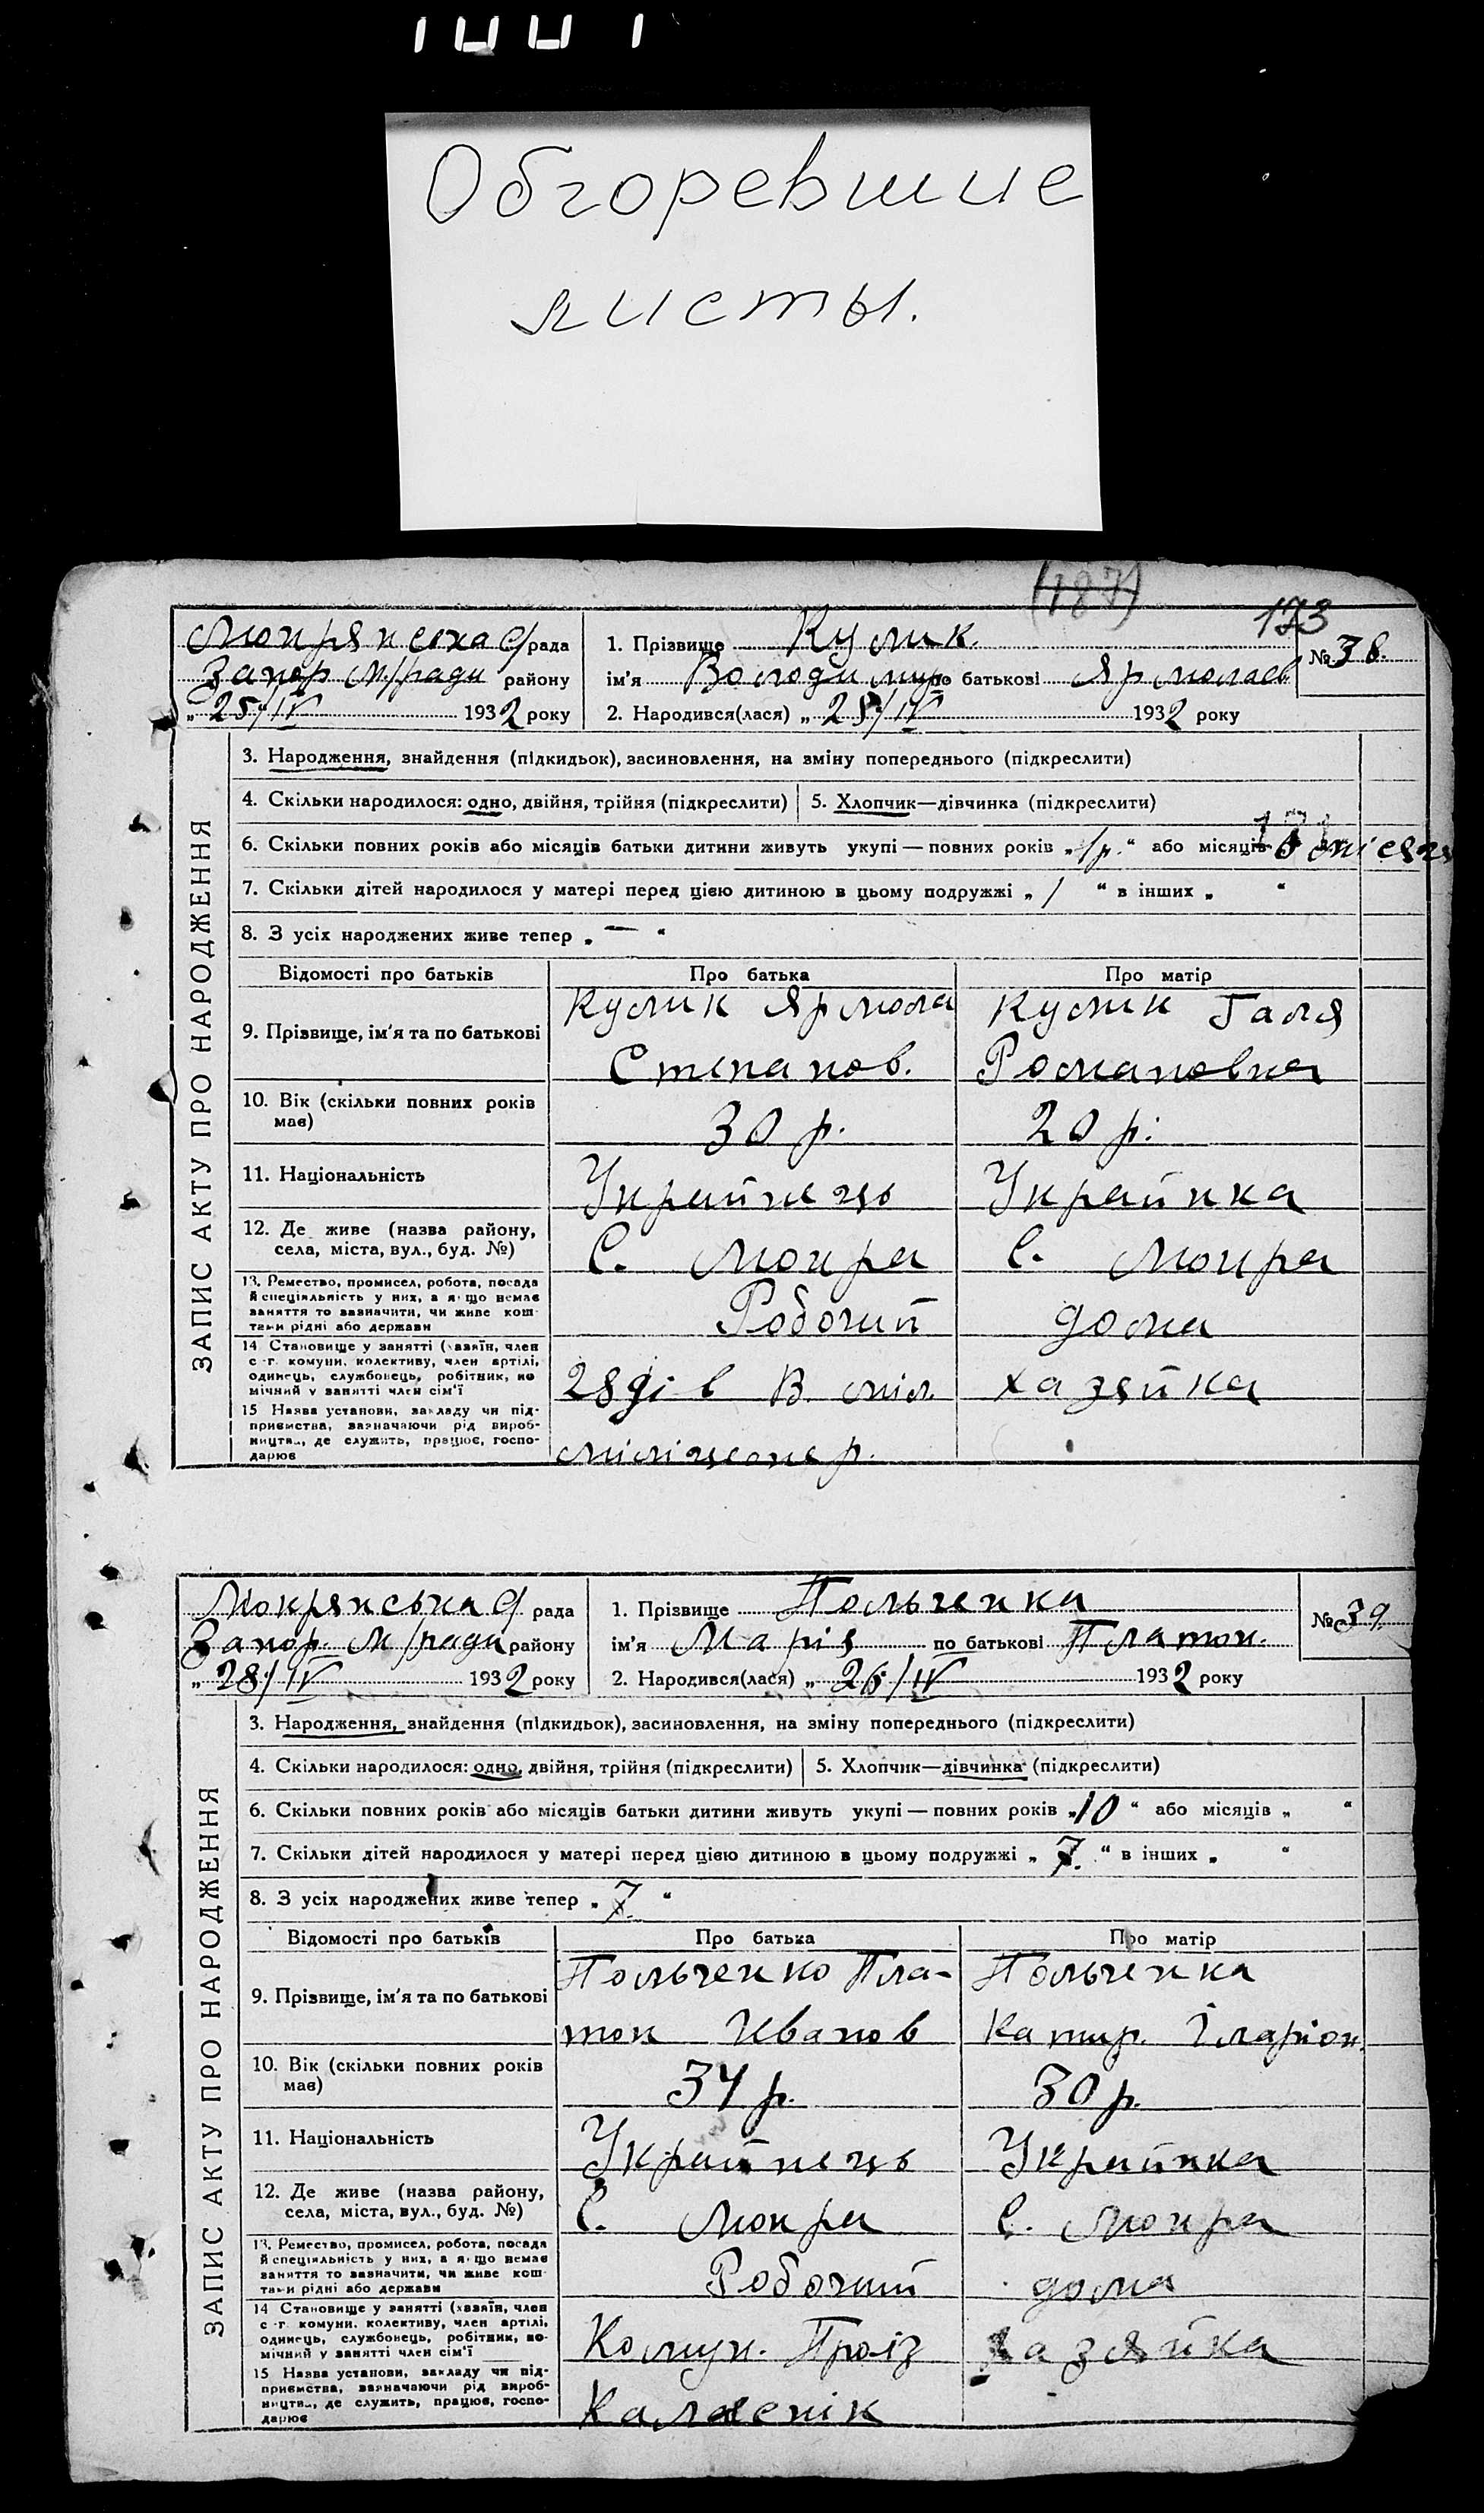 Обгоревшие
листы.
(187)
173
Мокрянська с/рада
Запор м/ради району
„25/IV 1932 року
1. Прізвище Кулик.
ім'я Володимир по батькові Ярмолаєв
2. Народився(лася) „25/IV 1932 року
№ 38.
ЗАПИС АКТУ ПРО НАРОДЖЕННЯ
3. Народження, знайдення (підкидьок), засиновлення, на зміну попереднього (підкреслити)
4. Скільки народилося: одно, двійня, трійня (підкреслити)
5. Хлопчик—дівчинка (підкреслити)
6. Скільки повних років або місяців батьки дитини живуть укупі — повних років „1р.“ або місяців місяця
7. Скільки дітей народилося у матері перед цією дитиною в цьому подружжі „1“ в інших „ “
8. З усіх народжених живе тепер „—“
Відомості про батьків Про батька Про матір
9. Прізвище, ім'я та по батькові
Кулик Ярмола
Степанов.
Кулик Галя
Романовна
10. Вік (скільки повних років має)
30 р. 20 р.
11. Національність
Украйнець Украйнка
12. Де живе (назва району,
села, міста, вул., буд. №)
С. Мокра С. Мокра
13. Ремество, промисел, робота, посада
й спеціяльність у них, а якщо немає
заняття то зазначити, чи живе кош-
тами рідні або держави
Робочий дома
14 Становище у занятті (хазяїн, член
с.-г. комуни, колективу, член артілі,
одинець, службовець, робітник, по-
мічний у занятті член сім'ї
28 ді в В. міл. хазяйка
15 Назва установи, закладу чи під-
приємства, зазначаючи рід вироб-
ництва, де служить, працює, госпо-
дарює
міліціонер.
Мокрянська с/рада
Запор. м/ради району
„28/IV 1932 року
1. Прізвище Польченка
ім'я Марія по батькові Платон.
2. Народився(лася) „26/IV 1932 року
№ 39.
ЗАПИС АКТУ ПРО НАРОДЖЕННЯ
3. Народження, знайдення (підкидьок), засиновлення, на зміну попереднього (підкреслити)
4. Скільки народилося: одно, двійня, трійня (підкреслити)
5. Хлопчик—дівчинка (підкреслити)
6. Скільки повних років або місяців батьки дитини живуть укупі — повних років „10“ або місяців „ “
7. Скільки дітей народилося у матері перед цією дитиною в цьому подружжі „7.“ в інших „ “
8. З усіх народжених живе тепер „7.“
Відомості про батьків Про батька Про матір
9. Прізвище, ім'я та по батькові
Польченко Пла-
тон Иванов
Польченка
Катир. Іларіон.
10. Вік (скільки повних років має)
34 р. 30 р.
11. Національність
Украйнець Украйнка
12. Де живе (назва району,
села, міста, вул., буд. №)
С. Мокра С. Мокра
13. Ремество, промисел, робота, посада
й спеціяльність у них, а якщо немає
заняття то зазначити, чи живе кош-
тами рідні або держави
Робочий дома
14 Становище у занятті (хазяїн, член
с.-г. комуни, колективу, член артілі,
одинець, службовець, робітник, по-
мічний у занятті член сім'ї
Комун. Проіз хазяйка
15 Назва установи, закладу чи під-
приємства, зазначаючи рід вироб-
ництва, де служить, працює, госпо-
дарює